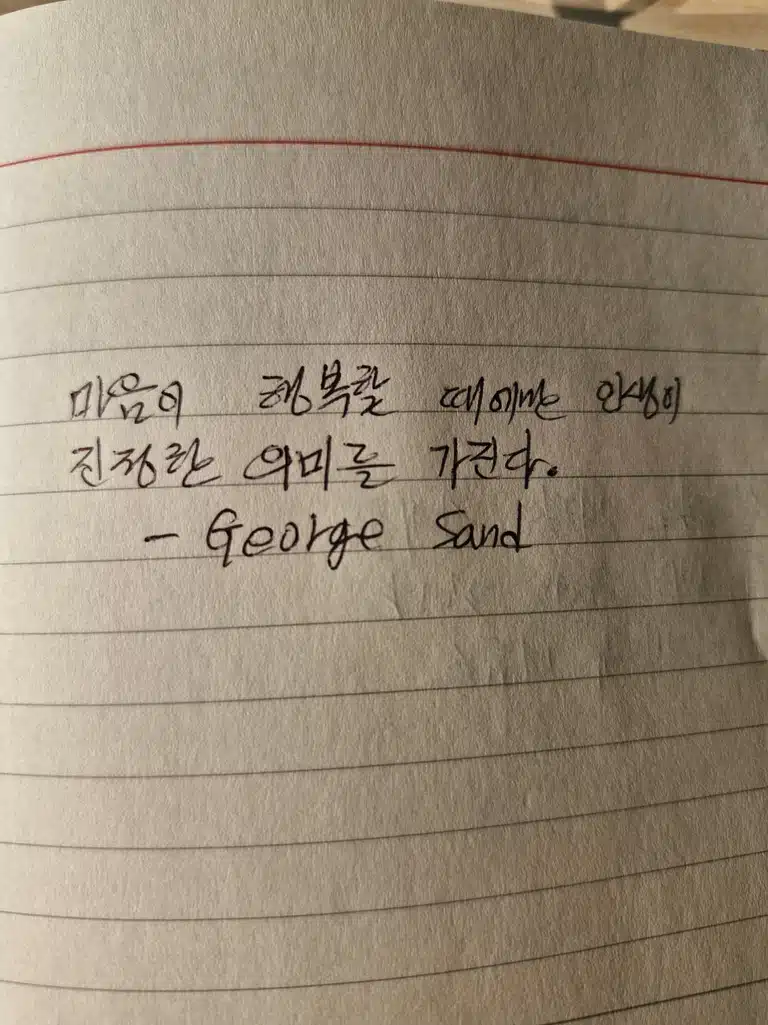 마음이 행복할 때에만 인생이
진정한 의미를 가진다.
- George Sand